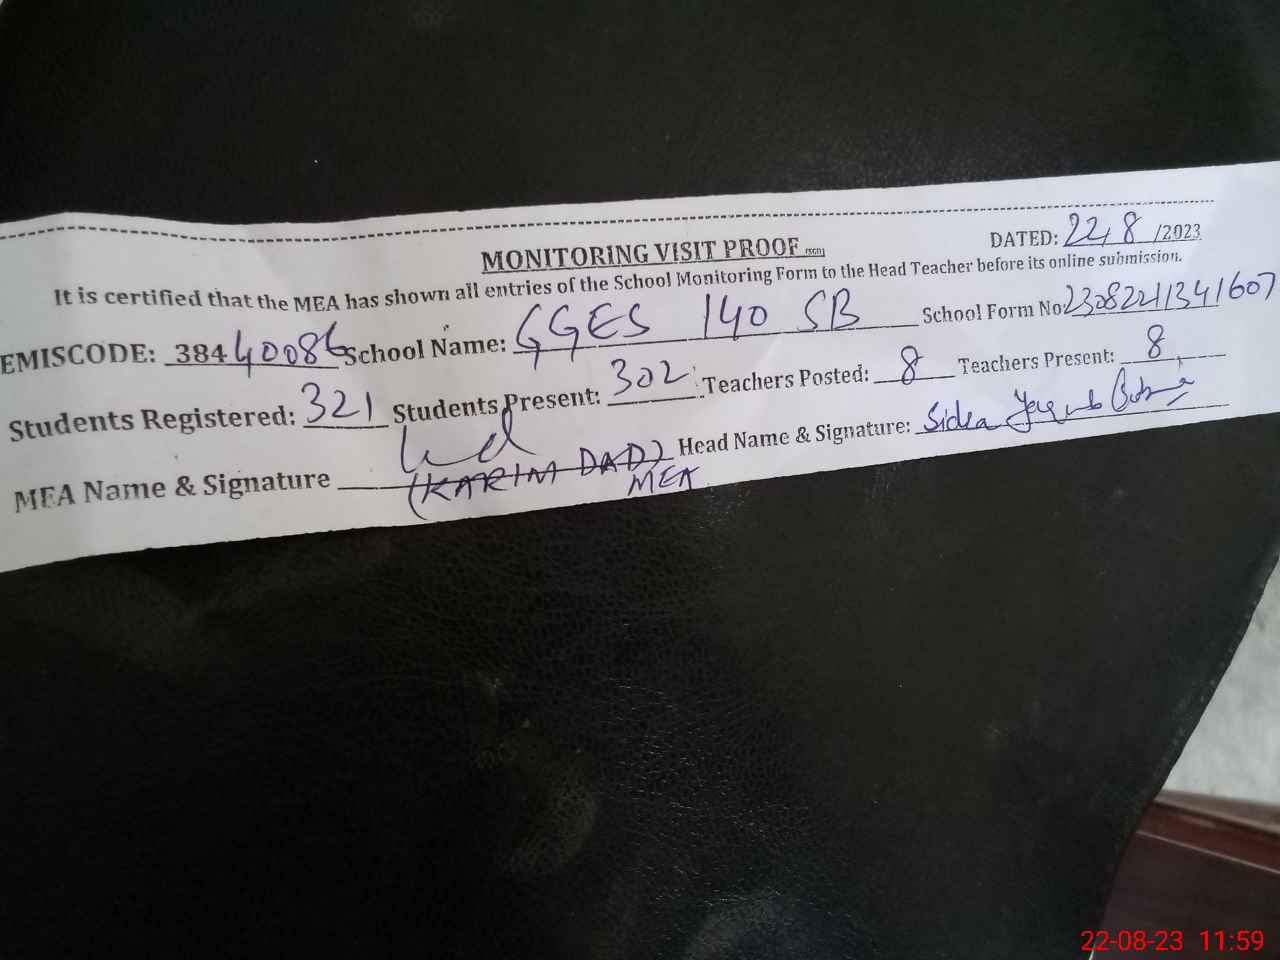 MONITORING VISIT PROOF
DATED: 22,8 /2023
It is certified that the MEA has shown all entries of the School Monitoring Form to the Head Teacher before its online submission.
EMISCODE: 38440086 School Name: GGES 140 SB School Form No 23082211341607
Students Registered: 321 Students Present: 302 Teachers Posted: 8 Teachers Present: 8
MEA Name & Signature (KARIM DAD) Head Name & Signature: Sidra
MEA
22-08-23 11:59